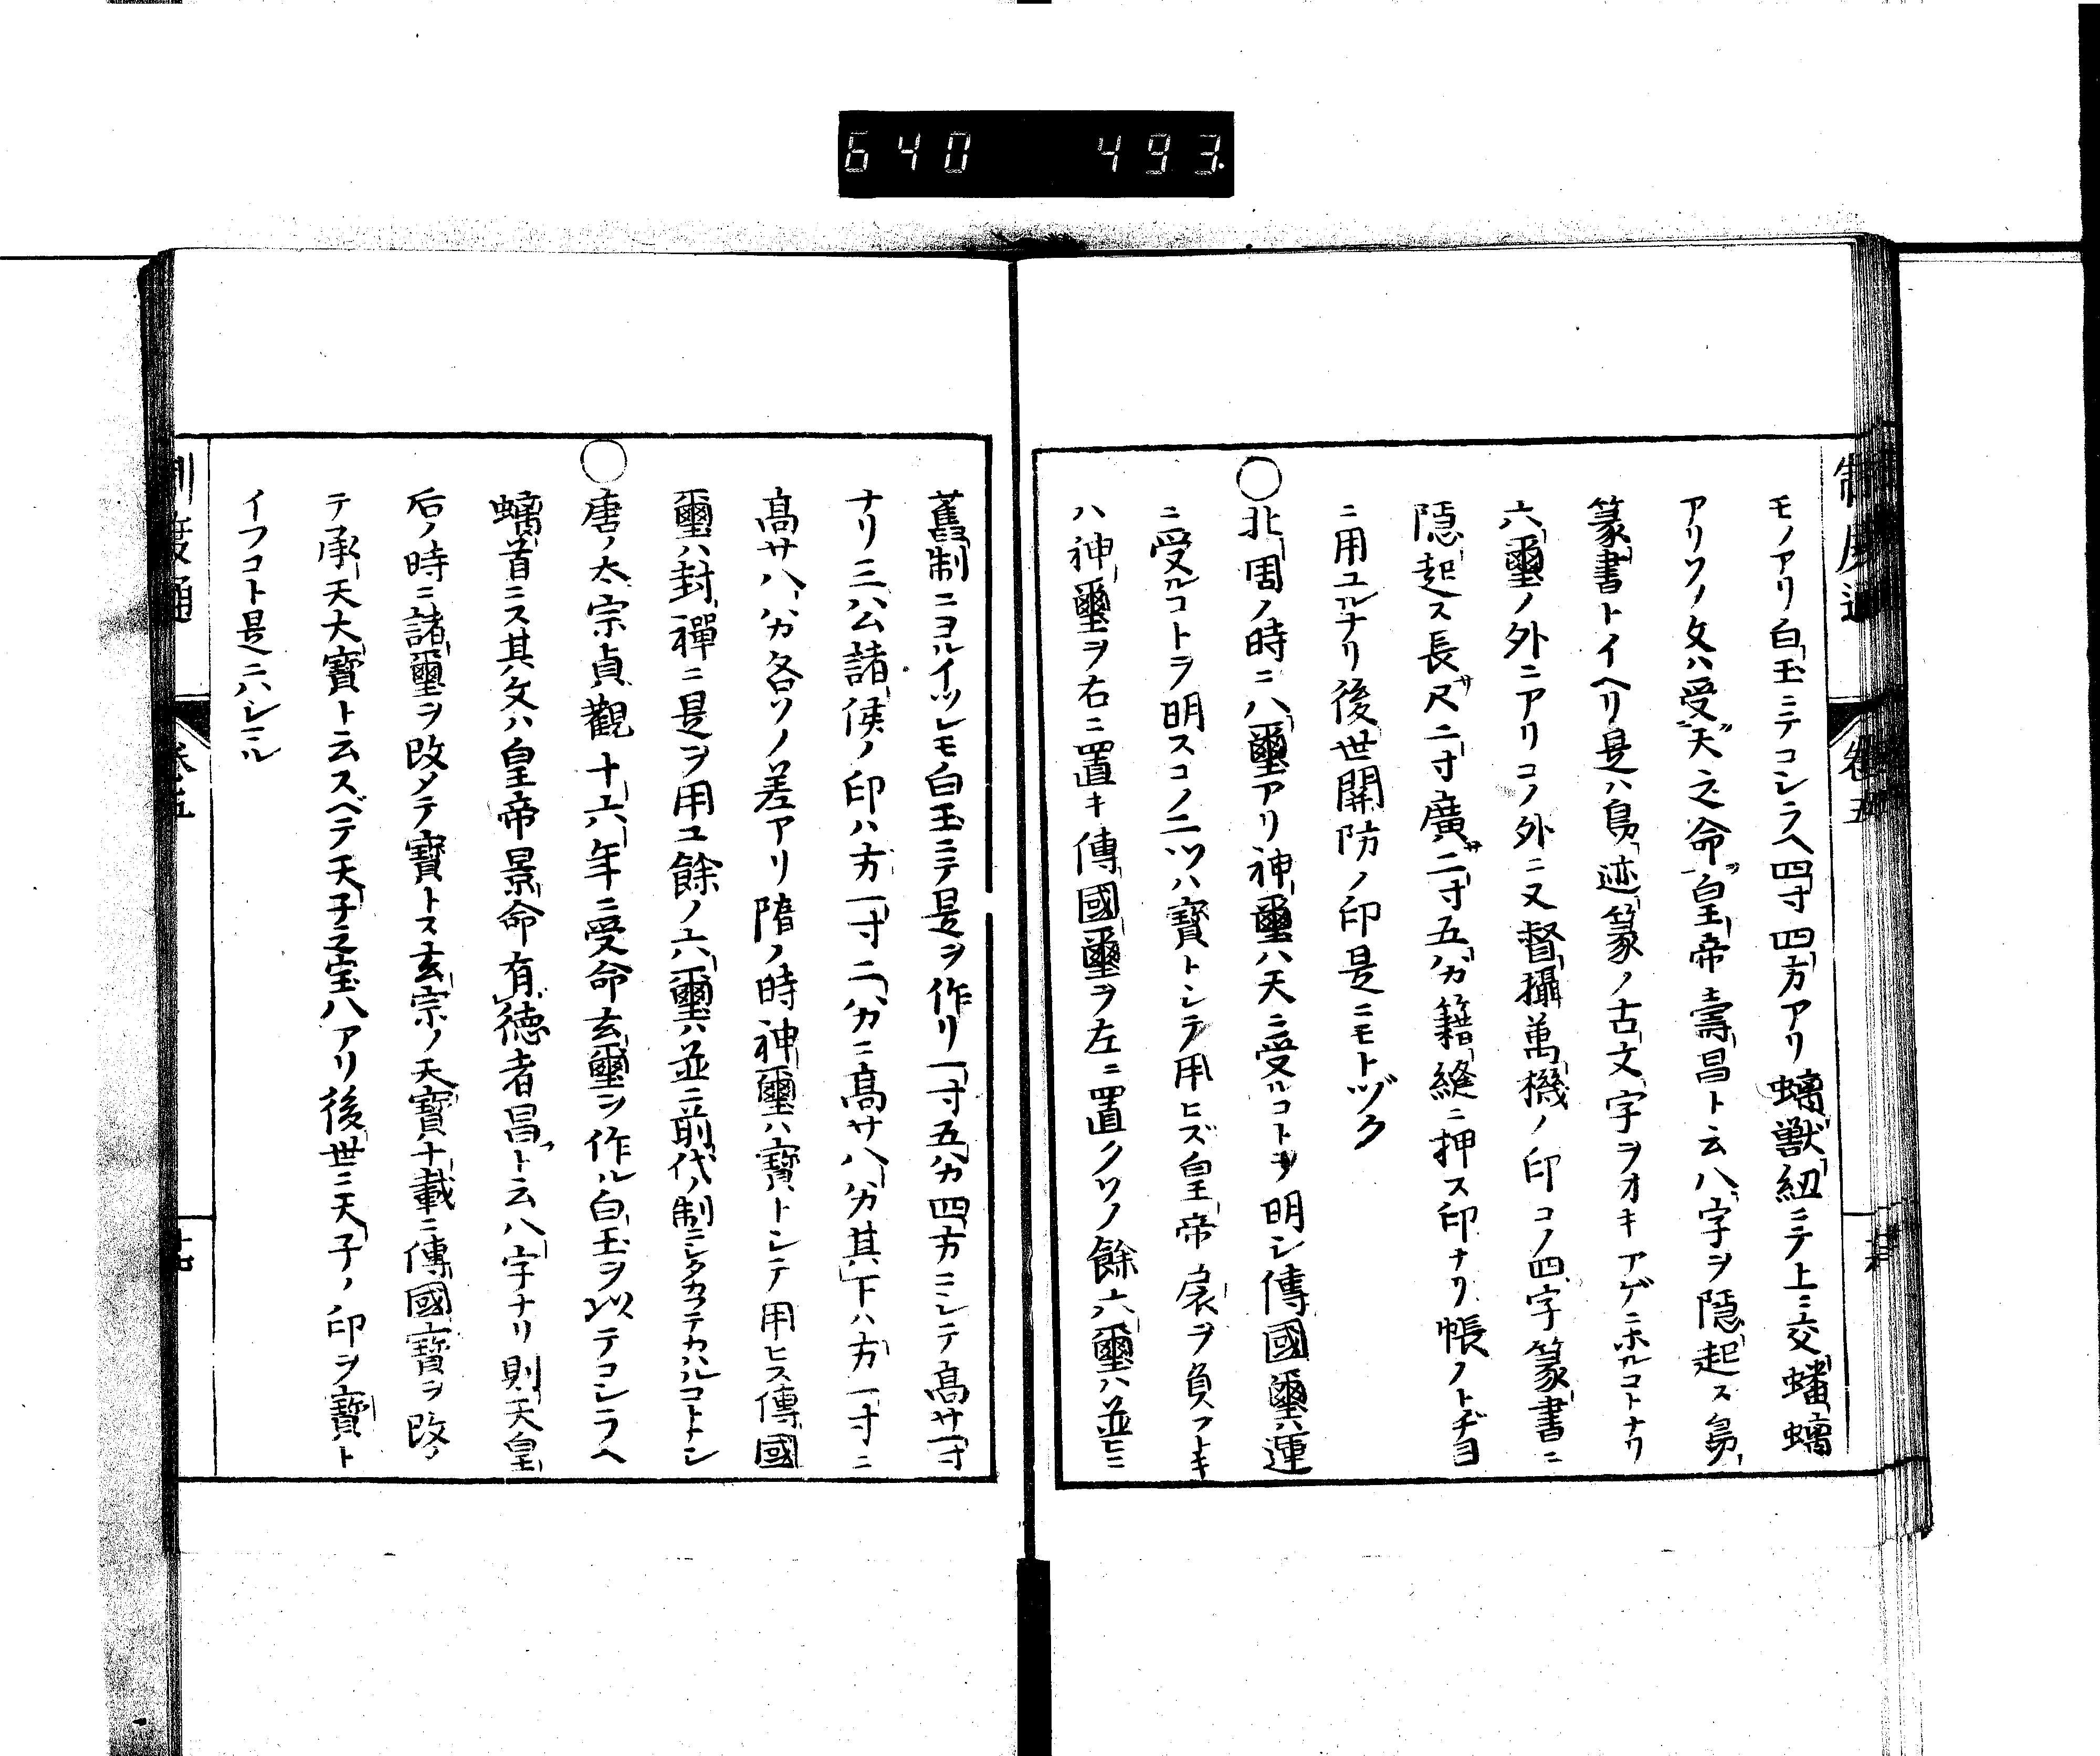 640 493.
制度通 卷五
モノアリ白玉ニテコシラヘ四寸四方アリ螭獣紐ニテ上ニ交蟠螭
アリソノ文ハ受天之命皇帝壽昌ト云八字ヲ隠起ス鳥
篆書トイヘリ是ハ鳥迹篆ノ古文字ヲオキアゲニホルコトナリ
六璽ノ外ニアリコノ外ニ又督攝萬機ノ印コノ四字篆書ニ
隠起ス長サ尺二寸廣サ二寸五分籍縫ニ押ス印ナリ帳ノトヂヨ
ニ用ユルナリ後世関防ノ印是ニモトヅク
○北周ノ時ニ八璽アリ神璽ハ天ニ受ルコトヲ明シ傳國璽ハ運
ニ受ルコトヲ明スコノ二ツハ寶トシテ用ヒズ皇帝扆ヲ負フトキ
ハ神璽ヲ右ニ置キ傳國璽ヲ左ニ置クソノ餘六璽ハ並ヒニ
舊制ニヨルイツレモ白玉ニテ是ヲ作リ一寸五分四方ニシテ高サ一寸
ナリ三公諸侯ノ印ハ方一寸二分ニ高サ八分其下ハ方一寸ニ
高サ八分各ソノ差アリ隋ノ時神璽ハ寶トシテ用ヒス傳國
璽ハ封禪ニ是ヲ用ユ餘ノ六璽ハ並ニ前代ノ制ニシタカフテカハルコトナシ
○唐ノ太宗貞觀十六年ニ受命玄璽ヲ作ル白玉ヲ以テコシラヘ
螭首ニス其文ハ皇帝景命有徳者昌ト云八字ナリ則天皇
后ノ時ニ諸璽ヲ改メテ寶トス玄宗ノ天寶十載ニ傳國寶ヲ改メ
テ承天大寶ト云スベテ天子之宝八アリ後世ニ天子ノ印ヲ寶ト
イフコト是ニハシマル
制度通 卷五